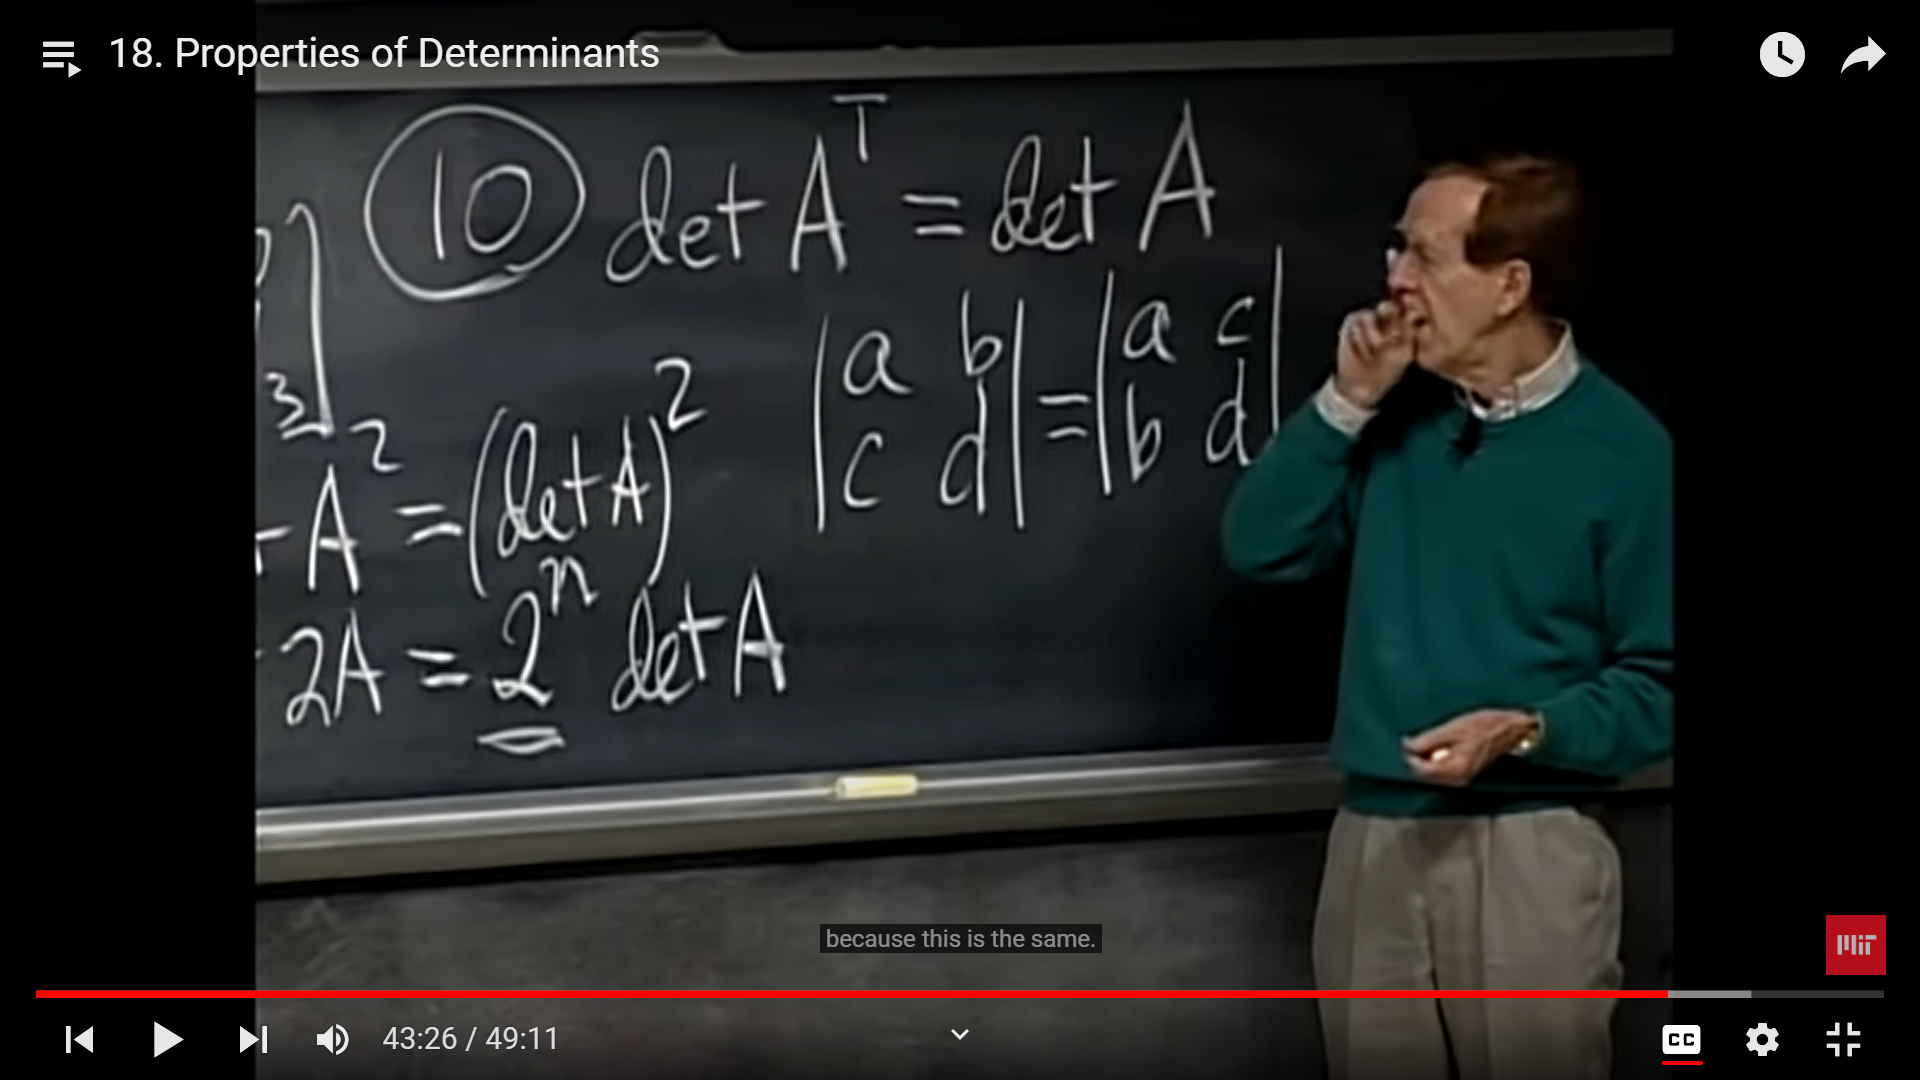 18. Properties of Determinants
10 det Aᵀ = det A
|a b| = |a c|
|c d| |b d|
3
A² = (det A)²
2A = 2ⁿ det A
because this is the same.
MIT
43:26 / 49:11
CC